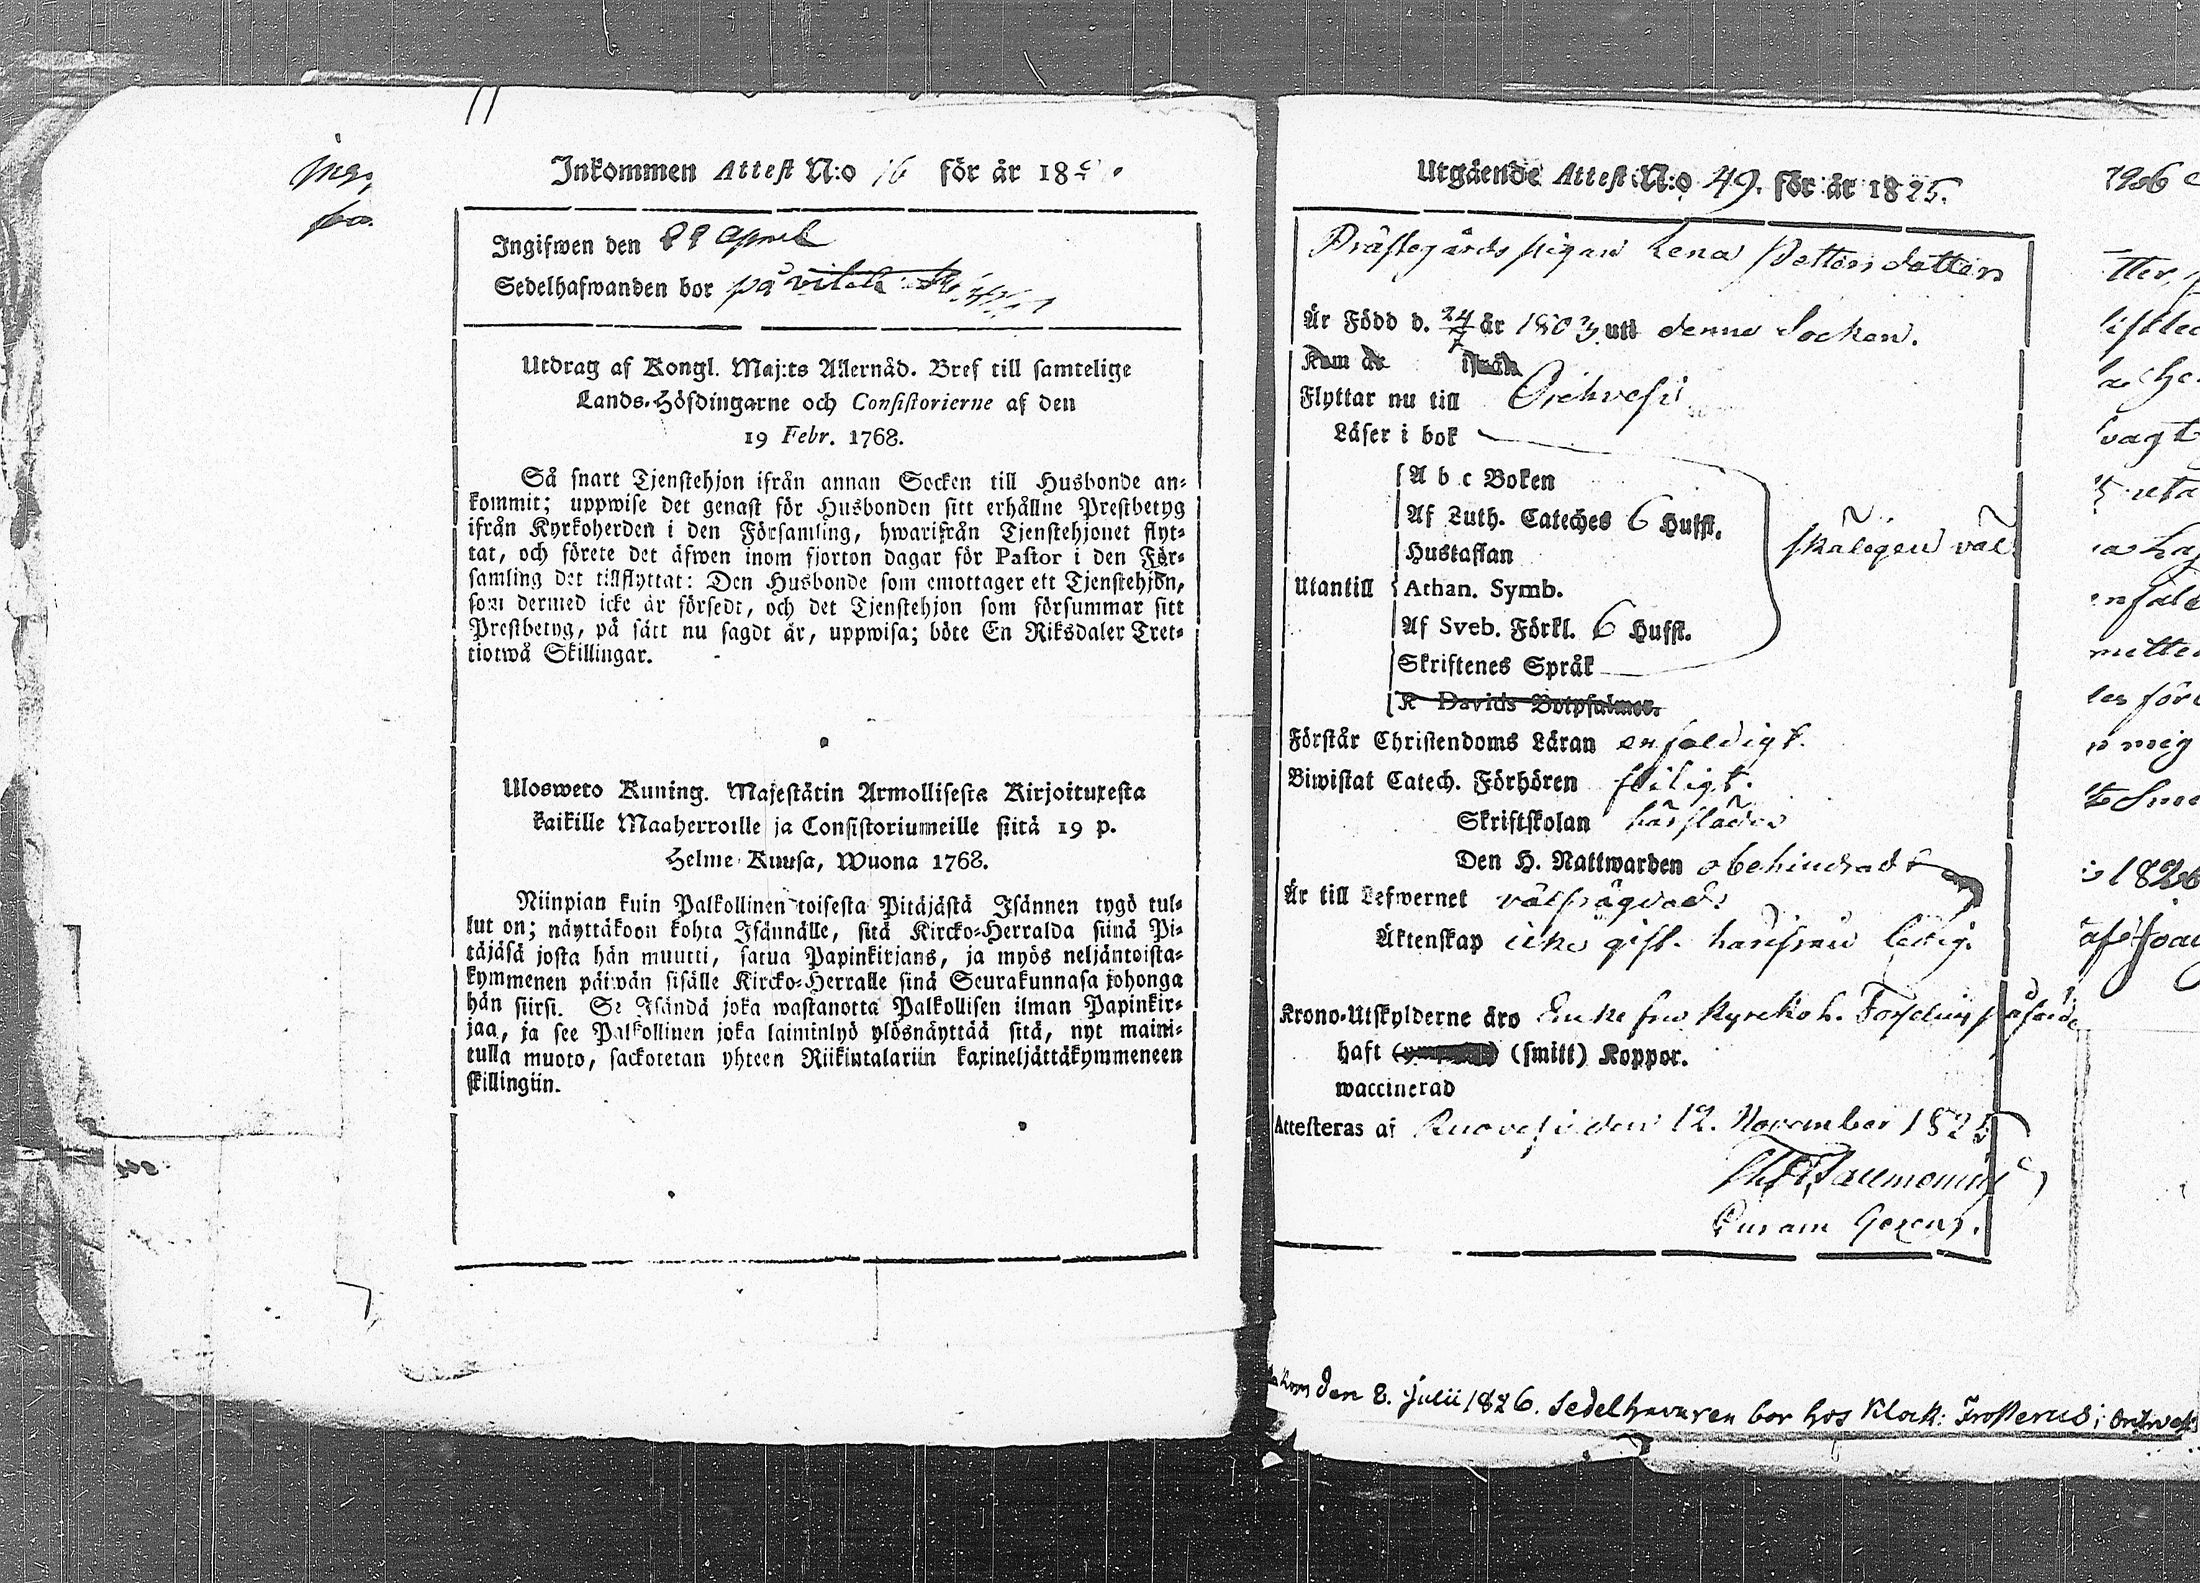 Inkommen Attest N:o 16 för år 18
Ingifwen den 22 April
Sedelhafwanden bor på
Utdrag af Kongl. Maj:ts Allernåd. Bref till samtelige
Lands-Höfdingarne och Consistorierne af den
19 Febr. 1768.
Så snart Tjenstehjon ifrån annan Socken till Husbonde an-
kommit; uppwise det genast för Husbonden sitt erhållne Prestbetyg
ifrån Kyrkoherden i den Församling, hwarifrån Tjenstehjonet flyt-
tat, och förete det äfwen inom fjorton dagar för Pastor i den För-
samling det tillflyttat: Den Husbonde som emottager ett Tjenstehjon,
som dermed icke är försedt, och det Tjenstehjon som försummar sitt
Prestbetyg, på sätt nu sagdt är, uppwisa; böte En Riksdaler Tret-
tiotwå Skillingar.
Ulosweto Kuning. Majestätin Armollisesta Kirjoituxesta
kaikille Maaherroille ja Consistoriumeille siitä 19 p.
Helme-Kuusa, Wuona 1768.
Niinpian kuin Palkollinen toisesta Pitäjästä Isännen tygö tul-
lut on; näyttäkoon kohta Isännälle, sitä Kircko-Herralda siinä Pi-
täjäsä josta hän muutti, saatua Papinkirjans, ja myös neljäntoista-
kymmenen päiwän sisälle Kircko-Herralle sinä Seurakunnasa johonga
hän siirsi. Se Isändä joka wastanotta Palkollisen ilman Papinkir-
jaa, ja see Palkollinen joka laiminlyö ylösnäyttää sitä, nyt maini-
tulla muoto, sackotetan yhteen Riikintalariin kaxineljättäkymmeneen
skillingiin.
Utgående Attest N:o 49. för år 1825.
Prästegårds pigan Lena Petters dotter
Är Född d. 24/7 år 1803 uti denne Socken.
Kom de
Flyttar nu till Orihvesi
Läser i bok
A b c Boken
Af Luth. Cateches 6 Hufst.
Hustaflan
skäligen väl
Utantill Athan. Symb.
Af Sveb. Förkl. 6 Hufst.
Skriftenes Språk
K Davids Botpsalmer.
Förstår Christendoms Läran enfaldigt.
Biwistat Catech. Förhören flitigt.
Skriftskolan härstädes
Den H. Nattwarden obehindradt
Är till Lefwernet välfrägdad
Äktenskap icke gift. härifrån ledig.
Krono-Utskylderne äro Enke fru Kyrkoh. påförde
haft (smitt) Koppor.
waccinerad
Attesteras af Ruovesi den 12. November 1825
Curam Gerens.
den 8. Julii 1826. Sedelhavaren bor hos Klock: Frosterus i
1826
mig